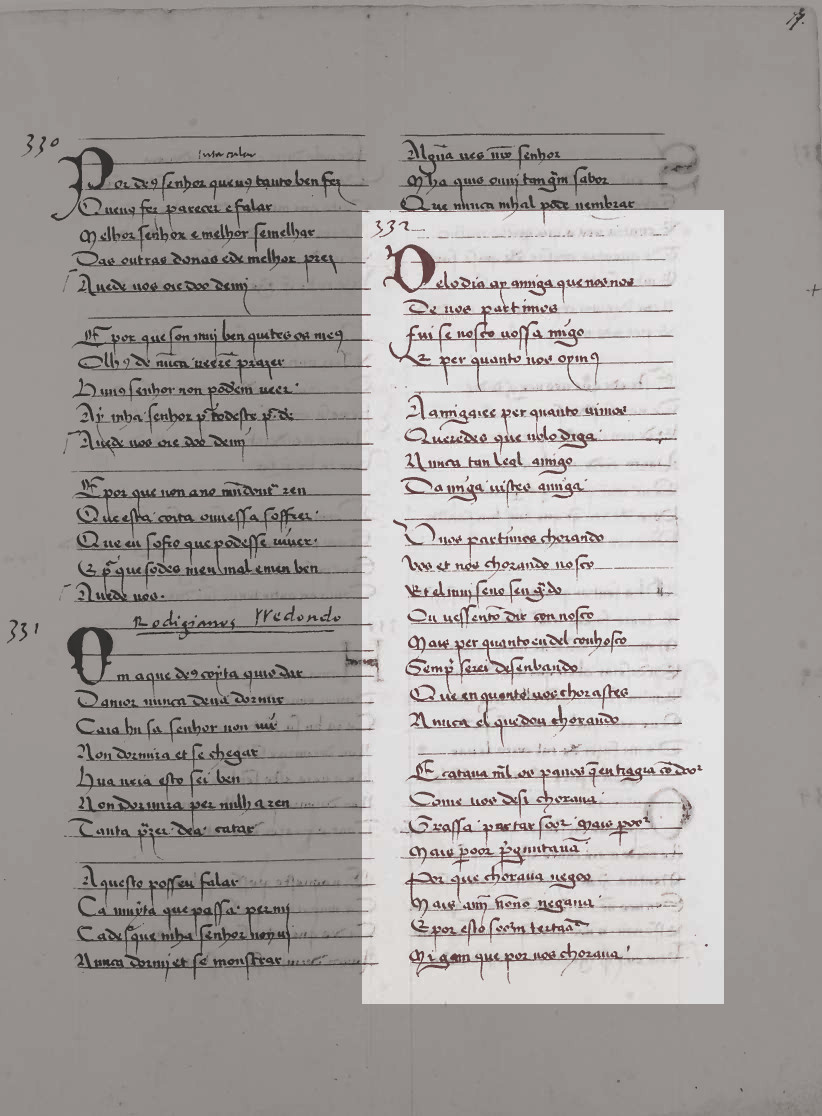 17
330
Por de9 senhor queu9 tanto ben fez
Queu9 fez parecer e falar
Melhor senhor e melhor semelhar
Das outras donas e de melhor prez
Auede uos oie doo demj
E por que son muj ben quites os me9
Olh9 de nũca ueerē prazer
Hu u9 senhor non podem ueer
Ay mha senhor
Auede uos oie doo demj
E por que non ano ren
Que esta coita ouuessa soffrer
Que eu sofro que podesse uiuer
E por que sodes meu mal e meu ben
Auede uos.
331
Rodrigianes Redondo
Om a que de9 coyta quis dar
Damor nunca deua dormir
Cara hu sa senhor non uir
Non dormira et se chegar
Hu a ueia esto sei ben
Non dormira per nulha ren
Tanta przer dea catar
Aquesto posseu falar
Ca muyta que passa per mj
Cades que mha senhor non uj
Nunca dormj et se monstrar
Algũa ues senhor
Mha quis ouuj tan grm sabor
Que nunca mhal pode nembrar
332
Delo dia ay amiga que nos nos
De uos partimos
Fui se nosco uossa migo
E per quanto nos oym9
A amiga ies per quanto uimos
Queredes que uolo diga
Nunca tan leal amigo
Damiga uistes amiga
U nos partimos chorando
Vos et nos chorando nosco
Et el muj seno seu grado
Ou uessento dir con nosco
Mais per quanto eu del conhosco
Sempr serei desenbando
Que en quanto uos chorastes
Nunca el quedou chorando
E cataua ml os panos q̃ en tragia cō door
Come uos desi choraua
Grassa partar soor mais poor
Mais poor preguntaua
Por que choraua negos
Mais amj nōno negaua
E por esto
Migam que por uos choraua